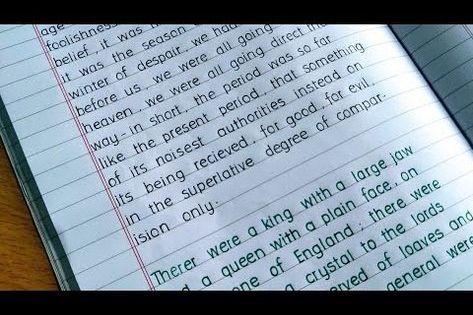 age
foolishness
belief, it was
it was the season
winter of despair, we had
before us, we were all going
heaven, we were all going direct the
way- in short, the period was so far
like the present period, that something
of its noisest authorities instead on
its being recieved, for good, for evil,
in the superlative degree of compar-
ision only.
Therer were a king with a large jaw
a queen with a plain face, on
one of England; there were
a crystal to the lords
of loaves and
general were